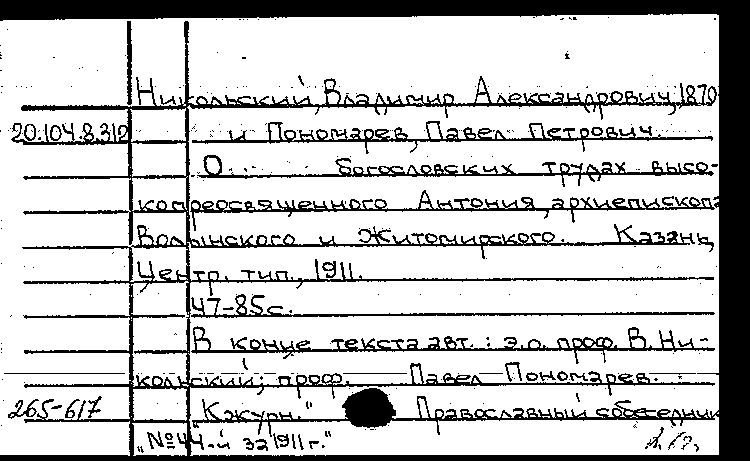 Никольский, Владимир Александрович, 1870
20.104.8.312 и Пономарев, Павел Петрович.
О... богословских трудах высо-
копреосвященного Антония, архиепископа
Волынского и Житомирского. Казань,
Центр. тип., 1911.
47-85с.
В конце текста авт.: э.о. проф. В. Ни-
кольский; проф. Павел Пономарев.
265-617 "К журн." Православный собеседник
"№44-й за 1911 г."